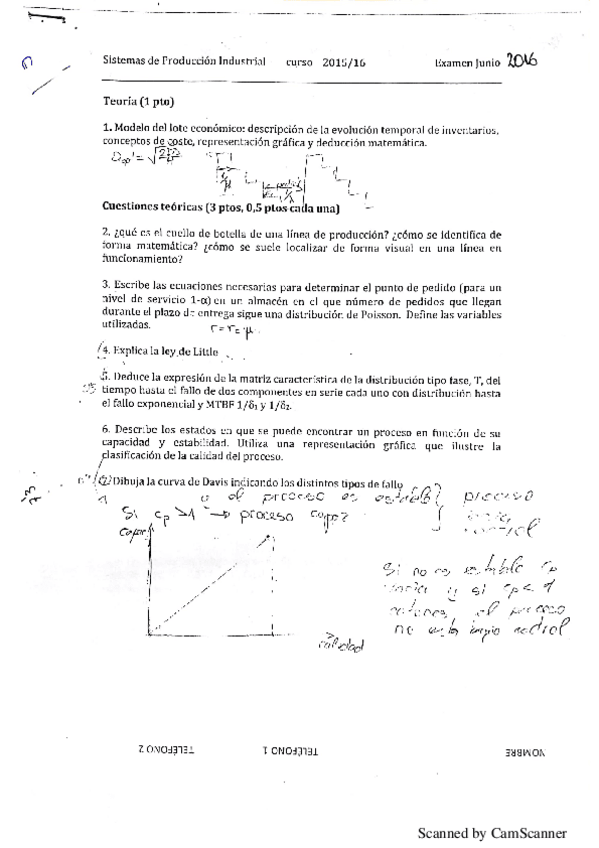 Sistemas de Producción Industrial curso 2015/16 Examen Junio 2016
Teoría (1 pto)
1. Modelo del lote económico: descripción de la evolución temporal de inventarios,
conceptos de coste, representación gráfica y deducción matemática.
Cuestiones teóricas (3 ptos, 0,5 ptos cada una)
2. ¿qué es el cuello de botella de una línea de producción? ¿cómo se identifica de
forma matemática? ¿cómo se suele localizar de forma visual en una línea en
funcionamiento?
3. Escribe las ecuaciones necesarias para determinar el punto de pedido (para un
nivel de servicio 1-α) en un almacén en el que número de pedidos que llegan
durante el plazo de entrega sigue una distribución de Poisson. Define las variables
utilizadas.
4. Explica la ley de Little
5. Deduce la expresión de la matriz característica de la distribución tipo fase, T, del
tiempo hasta el fallo de dos componentes en serie cada uno con distribución hasta
el fallo exponencial y MTBF 1/δ₁ y 1/δ₂.
6. Describe los estados en que se puede encontrar un proceso en función de su
capacidad y estabilidad. Utiliza una representación gráfica que ilustre la
clasificación de la calidad del proceso.
Dibuja la curva de Davis indicando los distintos tipos de fallo
el proceso es estable? proceso
Si cp >1 → proceso capo? control
capa
Si no es estable cp
varía y si cp < 1
entonces el proceso
no está bajo control
calidad
TELÉFONO 2 TELÉFONO 1 NOMBRE
Scanned by CamScanner